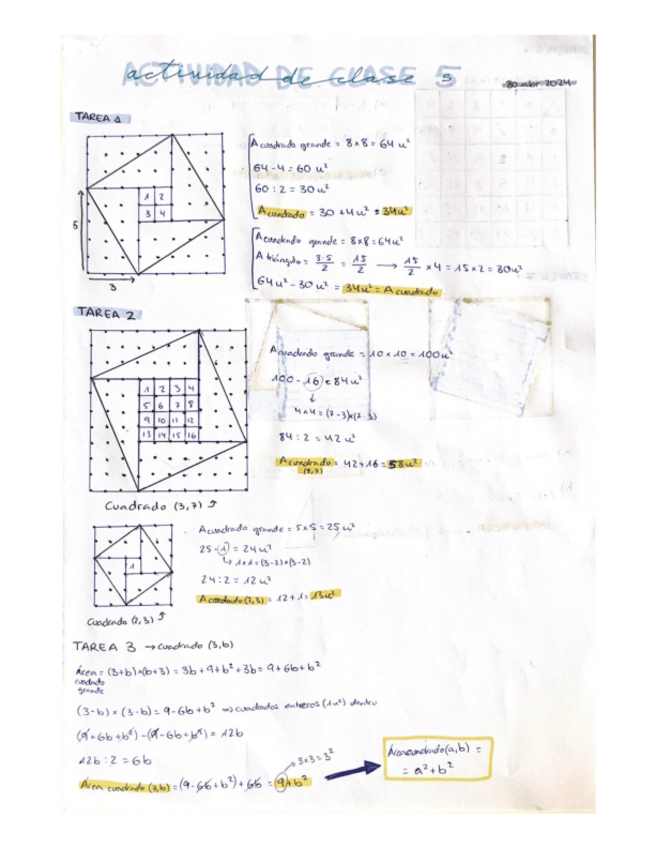 ACTIVIDAD DE CLASE 5
actividad de clase 5
30 abr 2024
TAREA 1
1 2
3 4
5
3
A cuadrado grande = 8×8 = 64 u²
64-4 = 60 u²
60 : 2 = 30 u²
A cuadrado = 30 + 4 u² = 34 u²
A cuadrado grande = 8×8 = 64 u²
A triángulo = 3·5/2 = 15/2 → 15/2 × 4 = 15×2 = 30 u²
64 u² - 30 u² = 34 u² = A cuadrado
TAREA 2
1 2 3 4
5 6 7 8
9 10 11 12
13 14 15 16
Cuadrado (3,7)
A cuadrado grande = 10 × 10 = 100 u²
100 - 16 = 84 u²
4×4 = (7-3)×(7-3)
84 : 2 = 42 u²
A cuadrado (3,7) = 42 + 16 = 58 u²
1
Cuadrado (2,3)
A cuadrado grande = 5×5 = 25 u²
25 - 1 = 24 u²
1×1 = (3-2)×(3-2)
24 : 2 = 12 u²
A cuadrado (2,3) = 12 + 1 = 13 u²
TAREA 3 → cuadrado (3,b)
Área cuadrado grande = (3+b)×(b+3) = 3b + 9 + b² + 3b = 9 + 6b + b²
(3-b) × (3-b) = 9 - 6b + b² ⇒ cuadrados enteros (1u²) dentro
(9 + 6b + b²) - (9 - 6b + b²) = 12b
12b : 2 = 6b
Área cuadrado (3,b) = (9 - 6b + b²) + 6b = 9 + b²
3×3 = 3²
Área cuadrado (a,b) =
= a² + b²